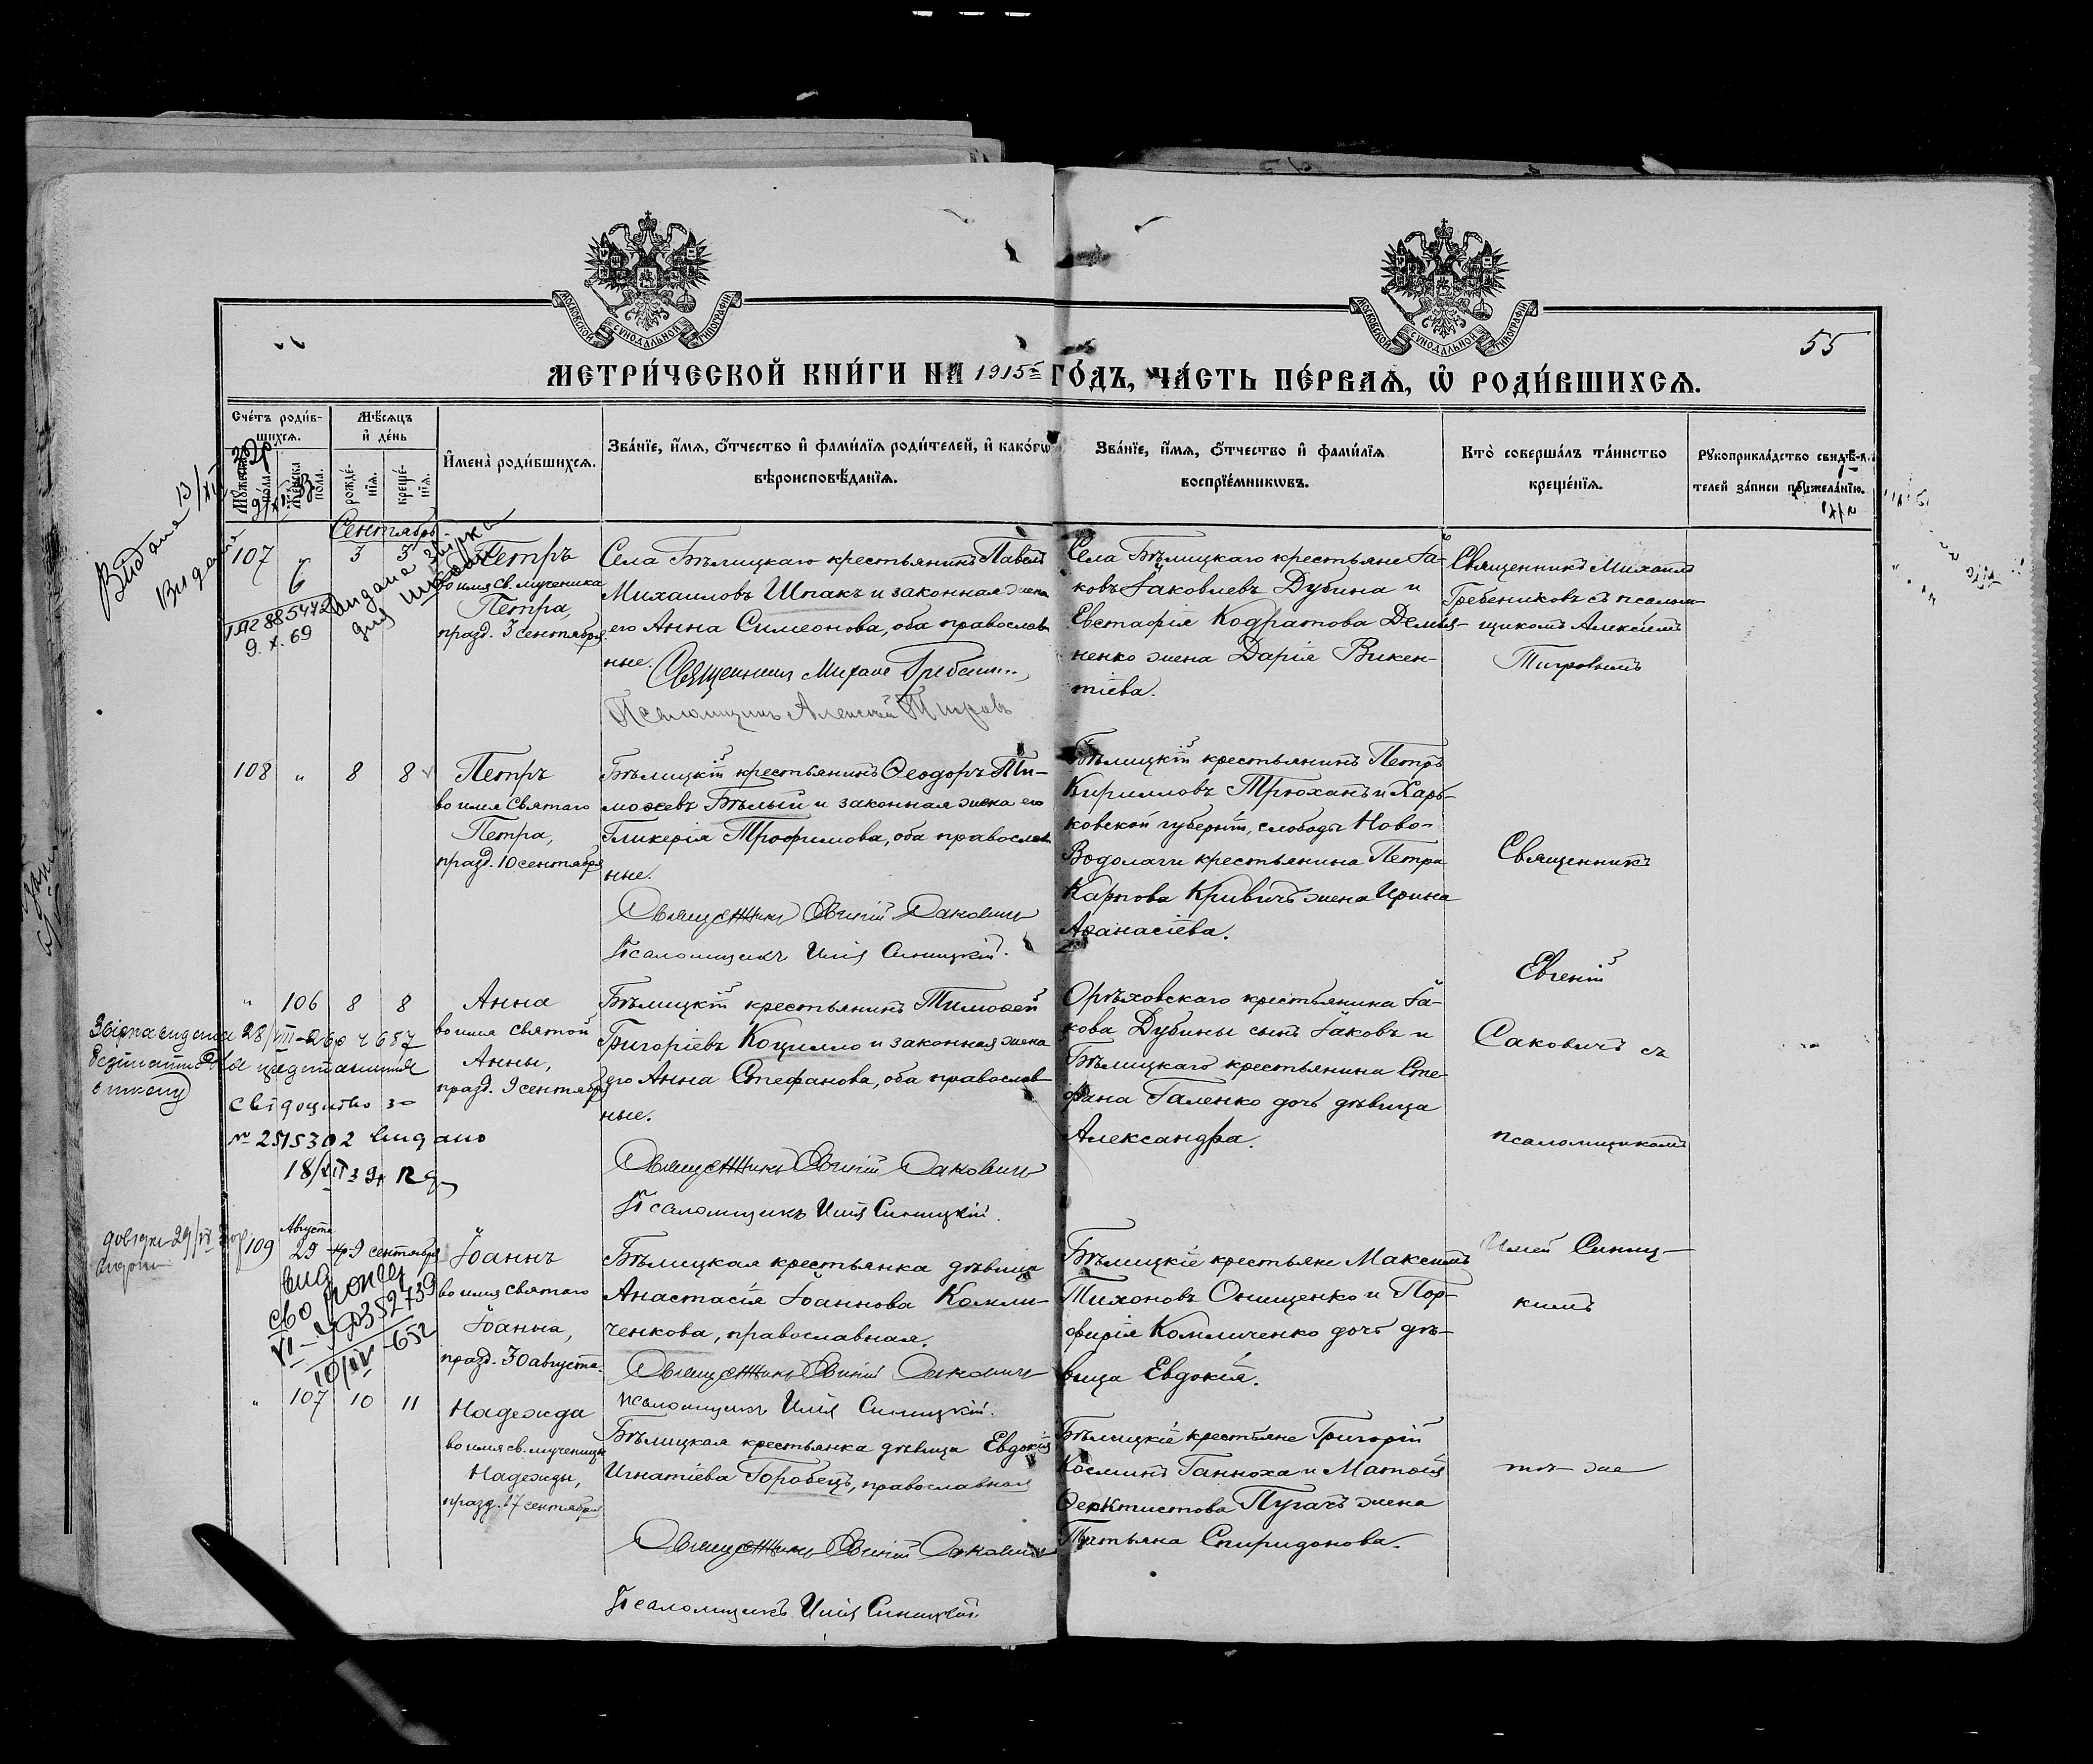 МОСКОВСКОЙ СѴНОДАЛЬНОЙ ТИПОГРАФІИ
МОСКОВСКОЙ СѴНОДАЛЬНОЙ ТИПОГРАФІИ
55
МЕТРИ́ЧЕСКОЙ КНИ́ГИ НА 1915 ГО́ДЪ, ЧА́СТЬ ПЕ́РВАѦ, Ѽ РОДИ́ВШИХСѦ.
Сче́тъ роди́в-
шихсѧ.
Мꙋ́жеска
по́ла.
Же́нска
по́ла.
Мѣ́сѧцъ
и҆ де́нь
рожде́-
нїѧ.
креще́-
нїѧ.
И҆мена̀ роди́вшихсѧ.
Зва́нїе, и҆́мѧ, ѻ҆́тчество и҆ фами́лїѧ роди́телей, и҆ како́гѡ
вѣроисповѣ́данїѧ.
Зва́нїе, и҆́мѧ, ѻ҆́тчество и҆ фами́лїѧ
воспрїе́мникѡвъ.
Кто̀ соверша́лъ та́инство
креще́нїѧ.
Рꙋкоприкла́дство свидѣ́-
телей за́писи по жела́нїю.
Сентябрь
107
3
3
Петръ
во имя св. мученика
Петра,
празд. 3 сентября.
Села Бѣлицкаго крестьянинъ Павелъ
Михаиловъ Шпакъ и законная жена
его Анна Симеонова, оба православ-
ные.
Священникъ Михаил Гребен
Псаломщикъ Алексѣй Тигровъ
Села Бѣлицкаго крестьяне Іа-
ковъ Іаковлевъ Дубина и
Евстафія Кодратова Демья-
ненко жена Дарія Викен-
тіева.
Священникъ Михаилъ
Гребениковъ съ псалом-
щикомъ Алексіемъ
Тигровымъ
885442
9. X. 69
Видана
Видана
108
"
8
8
Петръ
во имя Святаго
Петра,
празд. 10 сентября
Бѣлицкій крестьянинъ Ѳеодоръ Ти-
моѳеевъ Бѣлый и законная жена его
Гликерія Трофимова, оба православ-
ные.
Священникъ Евгеній Саковичъ
Псаломщикъ Илія Синицкій.
Бѣлицкій крестьянинъ Петръ
Кирилловъ Трюханъ и Харь-
ковской губерніи, слободы Ново-
Водолаги крестьянина Петра
Карпова Кривичъ жена Ирина
Аѳанасіева.
Священникъ
Евгеній
Саковичъ съ
псаломщикомъ
Иліей Синиц-
кимъ
"
106
8
8
Анна
во имя святой
Анны,
празд. 9 сентября
Бѣлицкій крестьянинъ Тимоѳей
Григоріевъ Коцилло и законная жена
его Анна Стефанова, оба православ-
ные.
Священникъ Евгеній Саковичъ
Псаломщикъ Илія Синицкій.
Орѣховскаго крестьянина Іа-
кова Дубины сынъ Іаковъ и
Бѣлицкаго крестьянина Сте-
фана Галенко дочь дѣвица
Александра.
№ 2515302 видано
109
Августа
29
9 сентября
Іоаннъ
во имя святаго
Іоанна,
празд. 30 августа.
Бѣлицкая крестьянка дѣвица
Анастасія Іоаннова Комли-
ченкова, православная.
Священникъ Евгеній Саковичъ
псаломщикъ Илія Синицкій.
Бѣлицкіе крестьяне Максимъ
Тихоновъ Онищенко и Пор-
фирія Комличенко дочь дѣ-
вица Евдокія.
"
107
10
11
Надежда
во имя св. мученицы
Надежды,
празд. 17 сентября
Бѣлицкая крестьянка дѣвица Евдокія
Игнатіева Горобецъ, православная
Священникъ Евгеній Саковичъ
Псаломщикъ Илія Синицкій.
Бѣлицкіе крестьяне Григорій
Косминъ Ганноха и Матѳія
Ѳеоктистова Пугачъ жена
Татьяна Спиридонова.
тѣ-же